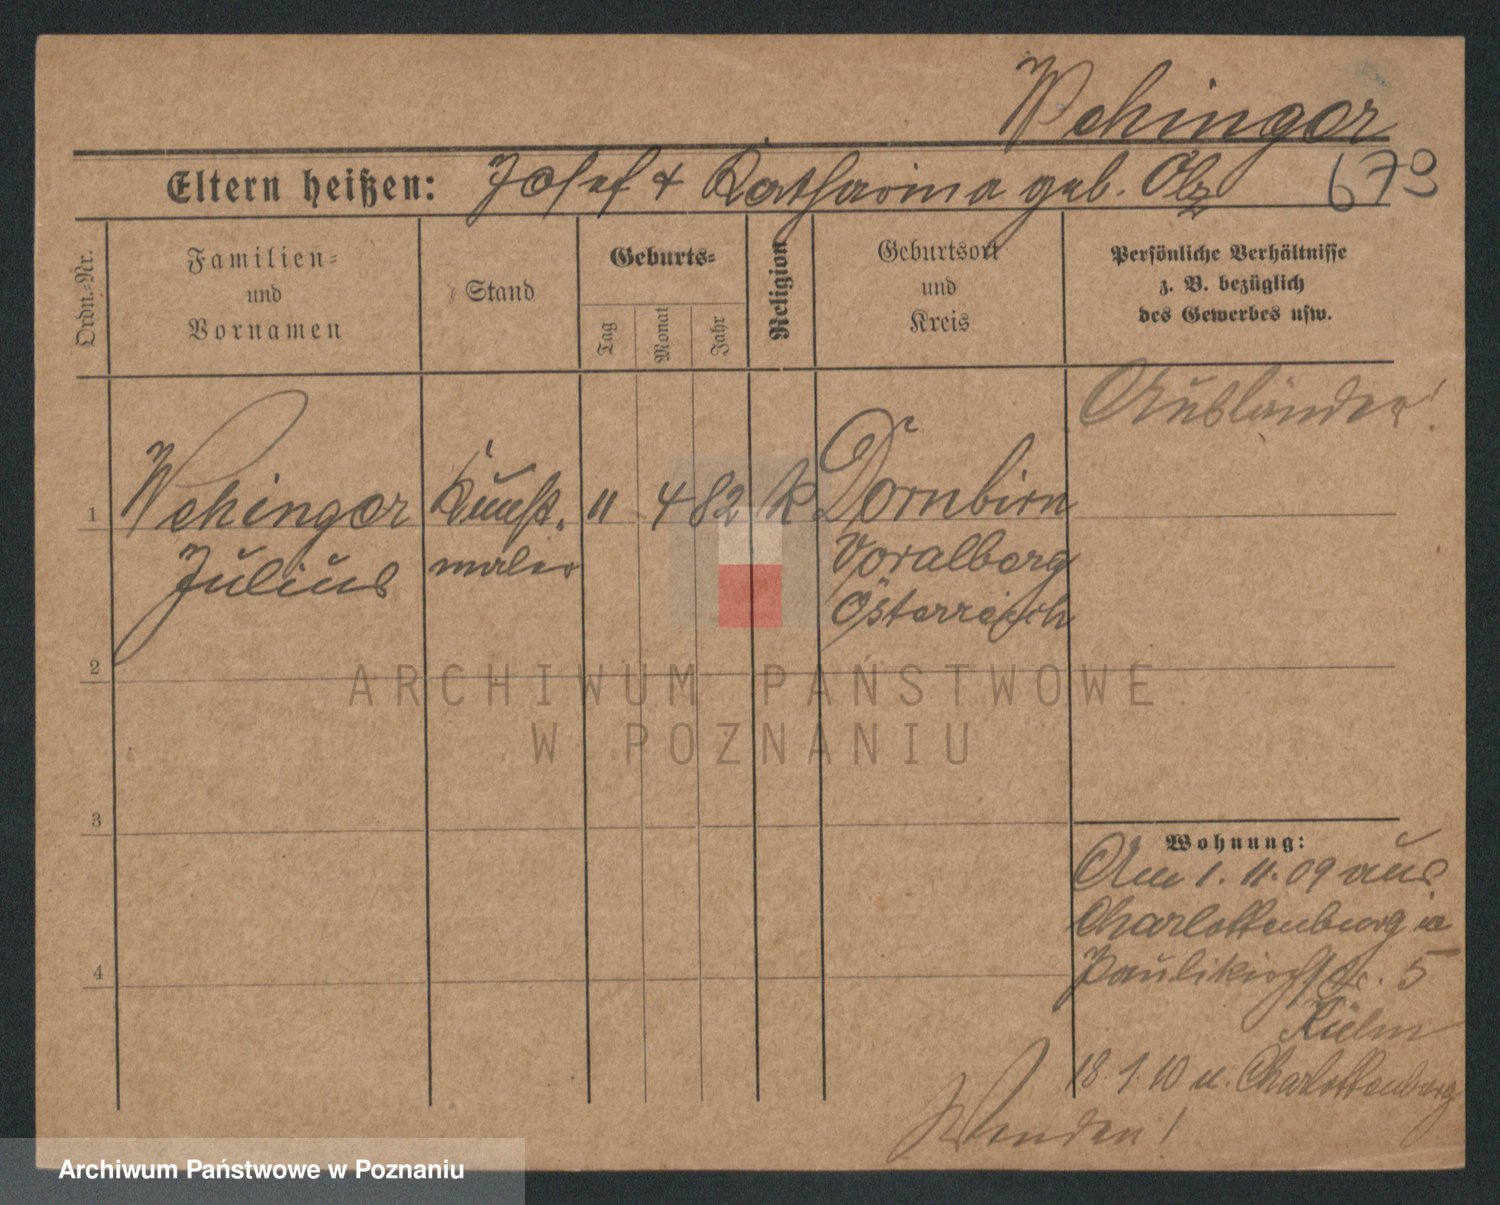 Wehinger
Eltern heißen: Josef & Katharina geb. Ölz 673
Ordn.-Nr.
Familien-
und
Vornamen
Stand
Geburts-
Tag
Monat
Jahr
Religion
Geburtsort
und
Kreis
Persönliche Verhältnisse
z. B. bezüglich
des Gewerbes usw.
Ausländer!
1 Wehinger Kunst- 11 4 82 k Dornbirn
Julius maler Voralberg
Österreich
2
ARCHIWUM PAŃSTWOWE
W POZNANIU
3
Wohnung:
Am 1. 11. 09 aus
Charlottenburg in
4 Paulikirchstr. 5
18. 1. 10 n. Charlottenburg
Wenden!
Archiwum Państwowe w Poznaniu